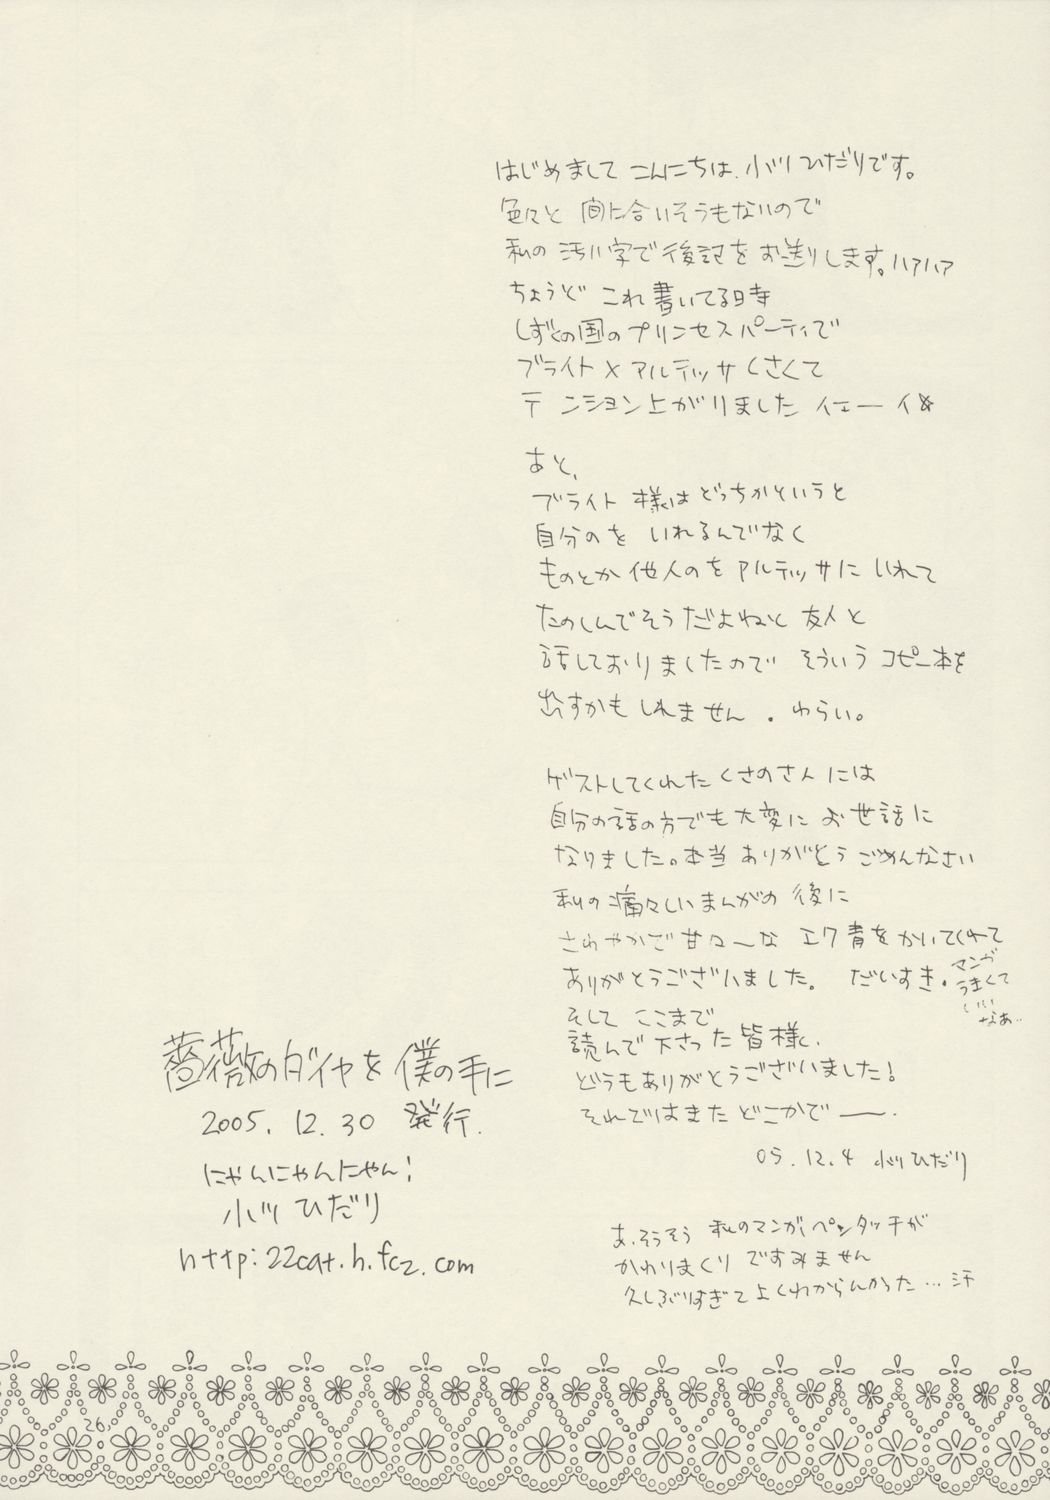 はじめまして こんにちは、小川ひだりです。
色々と 間に合いそうもないので
私の 汚い字で後記をお送りします。ハァハァ
ちょうど これ書いてる時
しずくの国のプリンセスパーティで
ブライト×アルテッサくさくて
テンション上がりました イェーイ☆
あと、
ブライト様はどっちかというと
自分のを いれるんでなく
ものとか他人のをアルテッサに いれて
たのしんでそうだよねぃと 友人と
話しておりましたので そういう コピー本を
出すかもしれません。わらい。
ゲストしてくれた くさのさんには
自分の話の方でも大変に お世話に
なりました。本当 ありがとう ごめんなさい
私の痛々しいまんがの 後に
さわやかで甘々〜な エク青をかいてくれて
ありがとうございました。 だいすき。
マンガ
うまくて
いい
なあ‥
そして ここまで
読んで下さった皆様、
どうもありがとうございました!
それではまた どこかで――.
05.12.4 小川ひだり
あ、そうそう 私のマンガ、ペンタッチが
かわりまくり ですみません
久しぶりすぎて よくわからんかった…汗
薔薇のダイヤを僕の手に
2005.12.30 発行.
にゃんにゃんにゃん!
小川 ひだり
http:22cat.h.fc2.com
26